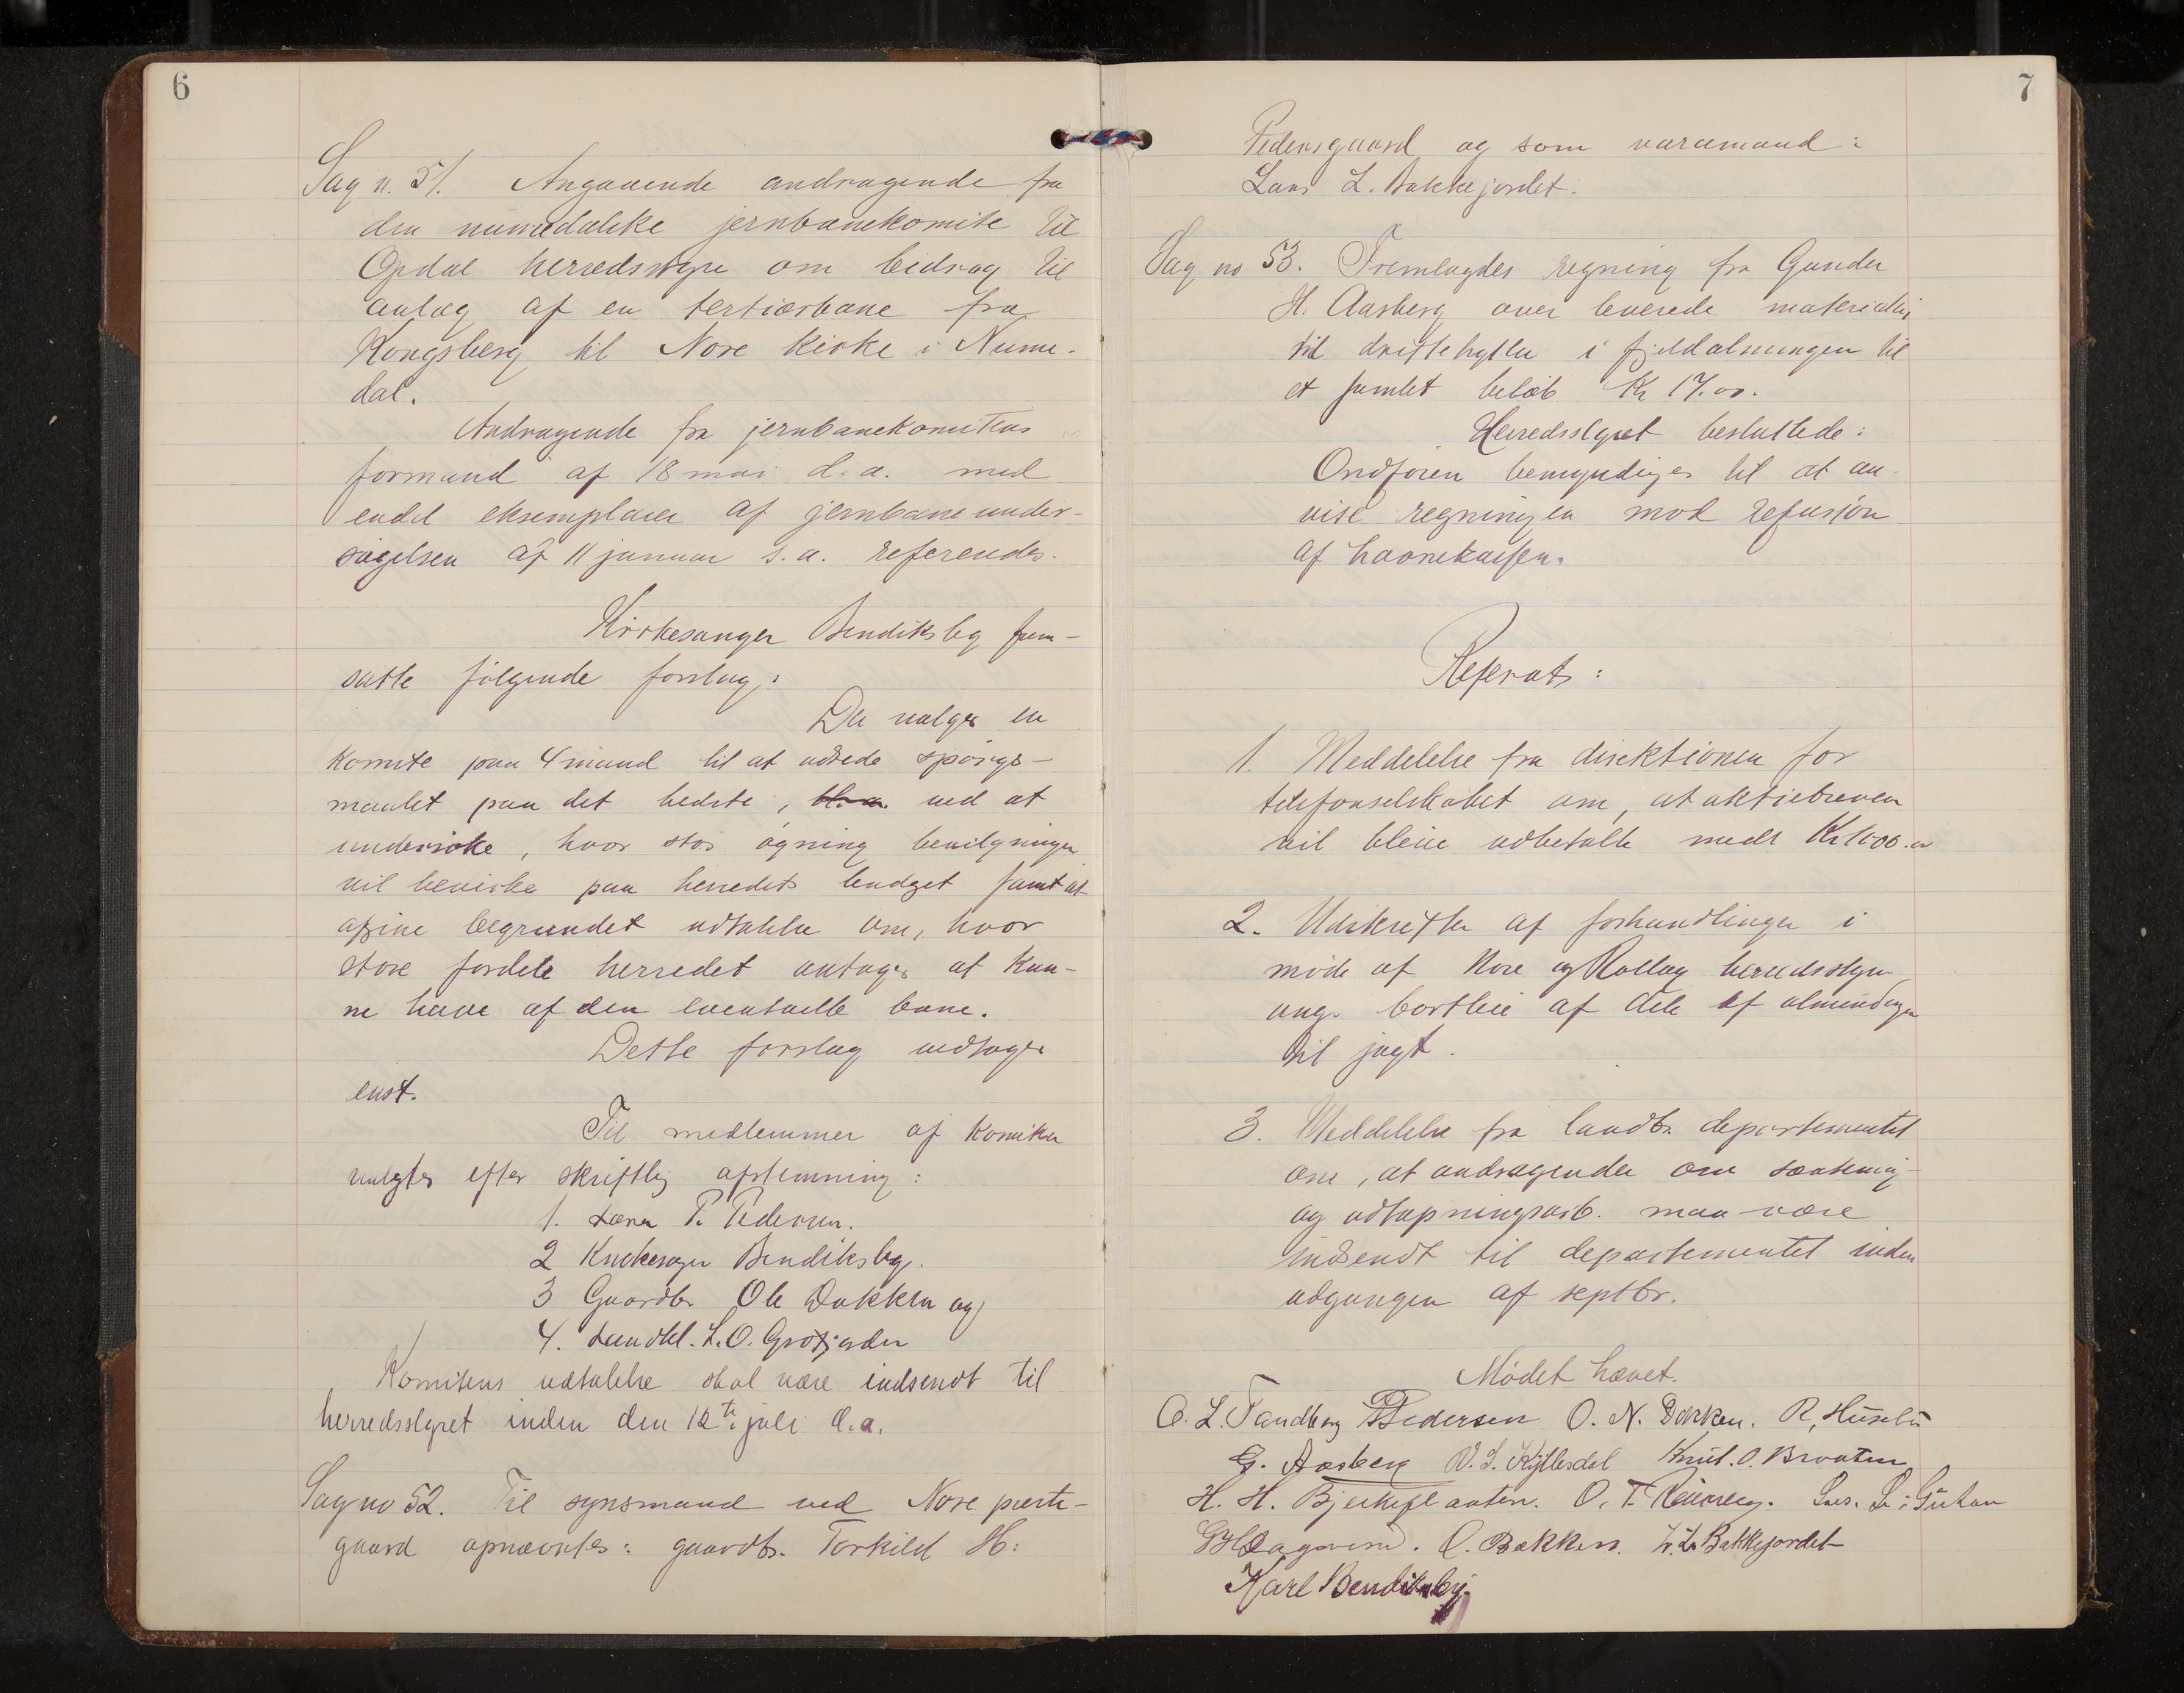 6
Sag n. 51. Angaaende andragende fra
den numedalske jernbanekomite til
Opdal herredsstyre om bidrag til
anlæg af en tertiærbane fra
Kongsberg til Nore kirke i Nume-
dal.
Andragende fra jernbanekomiteens
formand af 18 mai d.a. med
endel eksemplarer af jernbaneunder-
søgelsen af 11 januar s.a. refereredes.
Kirkesanger Bendiksby frem-
satte følgende forslag:
Der vælges en
komite paa 4 mand til at udrede spørgs-
maalet paa det bedste, bl. a. ved at
undersøke, hvor stor øgning bevilgningen
vil bevirke paa herredets budget samt at
afgive begrundet udtalelse om, hvor
store fordele herredet antages at kun-
ne have af den eventuelle bane.
Dette forslag vedtoges
enst.
Til medlemmer af komiteen
valgtes efter skriftlig afstemning:
1. Lærer P. Pedersen.
2 Kirkesanger Bendiksby.
3 Gaardbr. Ole Dokken og
4. Landhl. L.O. Grøtjorden
Komiteens udtalelse skal være indsendt til
herredsstyret inden den 12te juli d.a.
Sag no 52. Til synsmand ved Nore præste-
gaard opnævntes: gaardbr. Torkild H:
7
Pedersgaard og som varamand:
Lars L. Bakkejordet.
Sag no 53. Fremlagdes regning fra Gunder
H. Aasberg over leverede materialer
til driftehytter i fjeldalmungen til
et samlet beløb Kr 17.00.
Herredsstyret besluttede:
Ordføren bemyndiges til at an-
vise regningen mod refusjon
af havnekassen.
Referat:
1. Meddelelse fra direktionen for
telefonselskabet om, at aktiebreven
vil bleve udbetalte med
2. Udskrifter af forhandlinger i
møde af Nore og Rollag herredsstyre
ang. bortleie af dele af almindingen
til jagt.
3. Meddelelse fra landbr. departementet
om, at andragender om sænkning-
og udtapningsarb. maa være
indsendt til departementet inden
udgangen af septbr.
Mødet hævet.
O. L. Tandberg P Pedersen O. N. Dokken. R. Husebø
G. Aasberg V. S. Kyllesdal Knut. O. Braaten
H. H. Bjerkeflaaten. O. T.
O. Bakken. L. L. Bakkejordet
Karl Bendiksby.